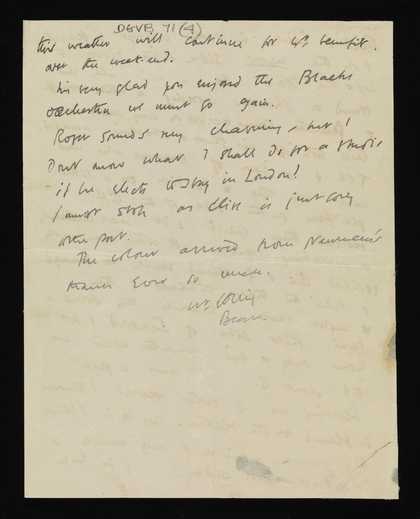 DGVB 71 (4)
this weather will continue for yr benefit.
over the week-end.
I'm very glad you enjoyed the Blacks
orchestra we must go again.
Roger sounds very charming,
Don't know what I shall do for a studio
if he elects to stay in London!
I must stop as Elise is just going
to the post.
The colour arrived from
thanks ever so much.